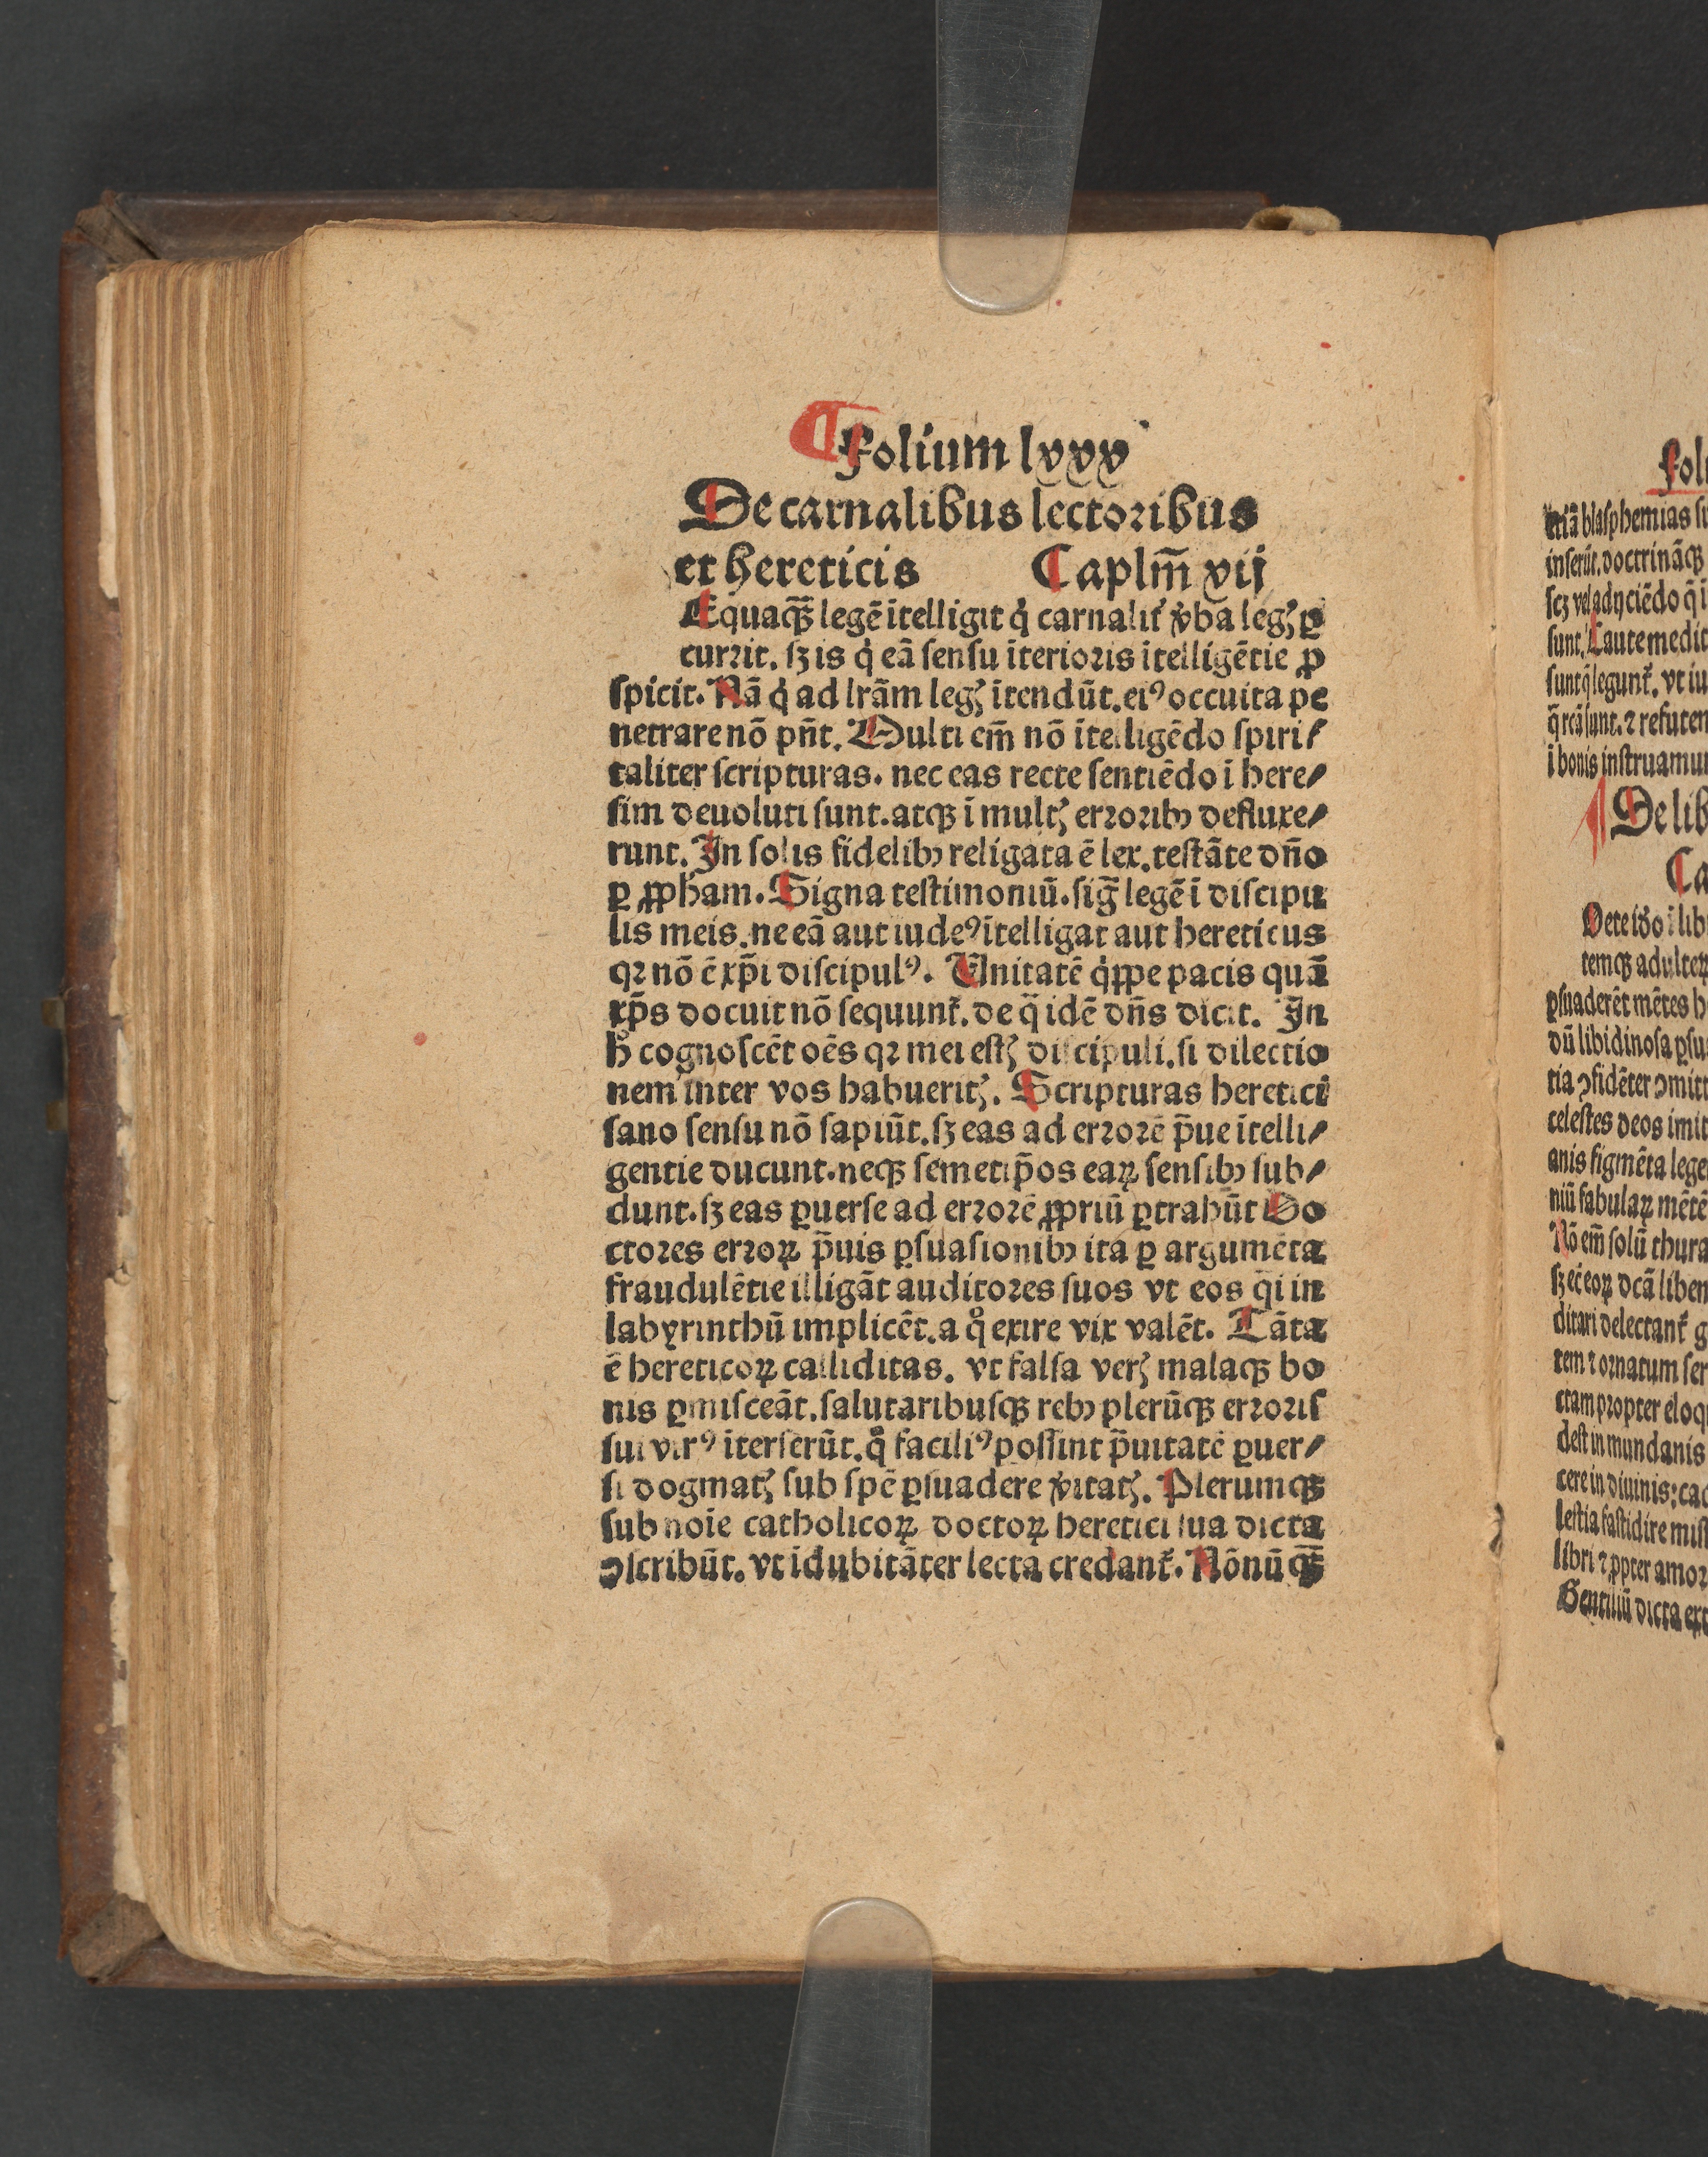 Folium lxxx
De carnalibus lectoribus
et hereticis Caplm̄ vij
Equaqꝫ̄ legē ītelligit q̇ carnalit᷑ v̓ba legꝫ ꝑ
currit. sꝫ is q̇ eā sensu īterioris ītelligētie ꝑ
spicit. Nā q̇ ad lrām legꝫ ītendūt. eiꝰ occulta pe
netrare nō pn̄t. Multi em̄ nō ītelligēdo spiri⸗
taliter scripturas. nec eas recte sentiēdo ī here⸗
sim deuoluti sunt. atqꝫ ī multꝫ erroribꝫ defluxe⸗
runt. In solis fidelibꝫ religata ē lex. testāte dn̄o
ꝑ ꝓpham. Signa testimoniū. sig̅ legē ī discipu
lis meis. ne eā aut iudeꝰ ītelligat aut hereticus
qꝛ nō ē xp̄i discipulꝰ. Unitatē q̇ppe pacis quā
xp̄s docuit nō sequunt᷑. de q̄ idē dn̄s dicit. In
hͦ cognoscēt oēs qꝛ mei estꝫ discipuli. si dilectio
nem inter vos habueritꝫ. Scripturas heretici
sano sensu nō sapiūt. sꝫ eas ad errorē p̄ue ītelli⸗
gentie ducunt. neqꝫ semetip̄os eaꝝ sensibꝫ sub⸗
dunt. sꝫ eas ꝑuerse ad errorē ꝓpriū ꝑtrahūt Do
ctores erroꝝ p̄uis ꝑsuasionibꝫ ita ꝑ argumēta
fraudulētie illigāt auditores suos vt eos q̄i in
labyrinthū implicēt. a qͦ exire vix valēt. Tāta
ē hereticoꝝ calliditas. vt falsa verꝫ malaqꝫ bo
nis ꝑmisceāt. salutaribusqꝫ rebꝫ plerūqꝫ erroris
sui virꝰ īterserūt. qͦ faciliꝰ possint p̄uitatē ꝑuer⸗
si dogmatꝫ sub spē ꝑsuadere v̓itatꝫ. Plerumqꝫ
sub noīe catholicoꝝ doctoꝝ heretici sua dicta
ꝯscribūt. vt īdubitāter lecta credant᷑. Nōnūqꝫ̄
etiā blasphemias
inserūt. doctrināqꝫ
scꝫ vel adijciēdo q̄
sunt. Caute medit
sunt q̄ legunt᷑. vt iu
q̄ rcā sunt. ⁊ refuten
ī bonis instruamur
De lib
Ca
temqꝫ adulteꝝ
ꝑsuaderēt mētes
dū libidinosa ꝑsu
tia ꝯfidēter ꝯmitt
celestes deos imit
anis figmēta lege
niū fabulaꝝ mētē
Nō em̄ solū thura
ditari delectant᷑
tem ⁊ ornatum ser
ctam propter eloq
dest in mundanis
cere in diuinis: cad
lestia fastidire mist
libri ⁊ ꝓpter amor
Gentiliū dicta ext